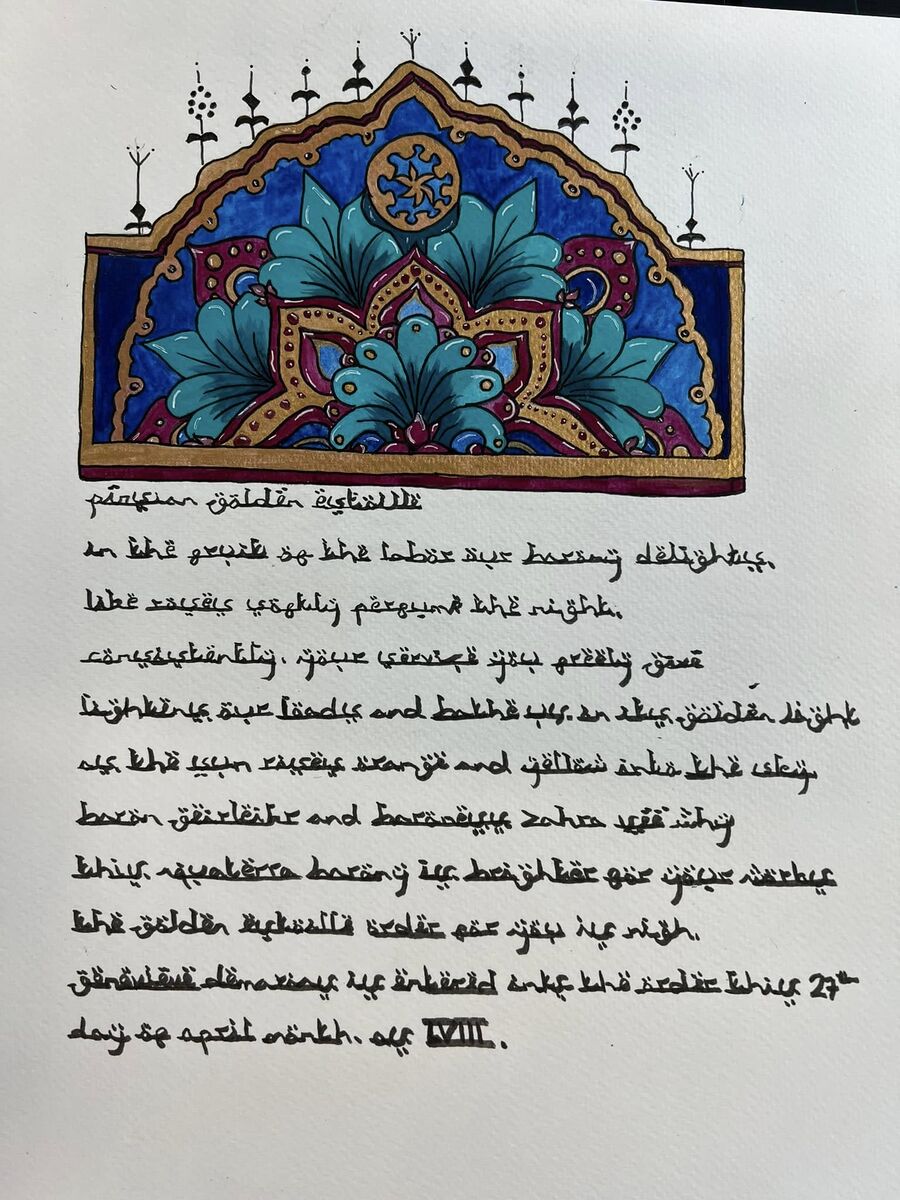 persian golden estoille
in the fruit of the labor our barony delights.
like roses softly perfume the night.
consistently. your service you freely gave
lightens our loads and bathe us. in its golden light
as the sun raises orange and yellow into the sky
baron geirleikr and baroness zahra see why
this. aquaterra barony is brighter for your works
the golden estoille order for you is nigh.
genevieve demarias is entered into the order this 27th
day of april month. as LVIII.